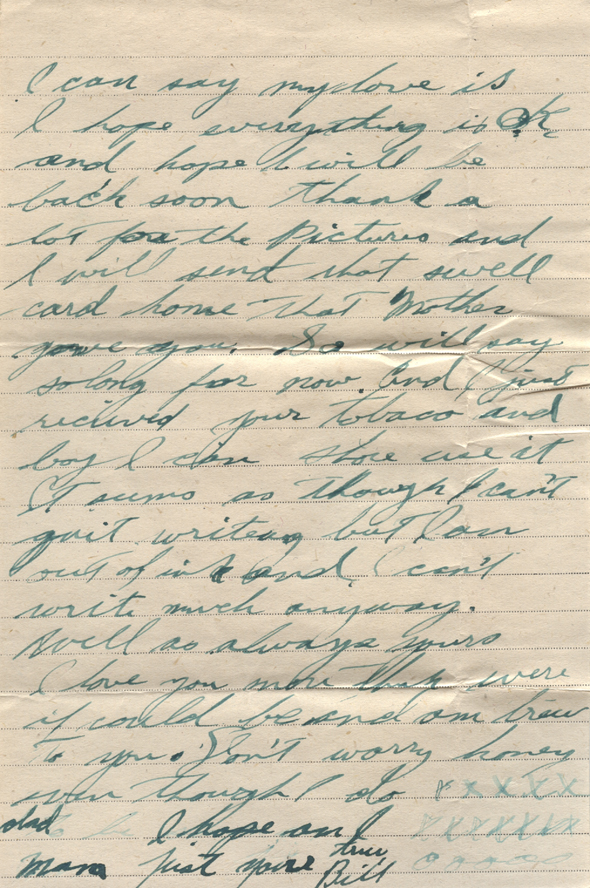 I can say my love is
I hope everything is OK
and hope I will be
back soon thank a
lot for the Pictures and
I will send that swell
card home that Mother
gave you. So will say
solong for now. And I just
recieved your tobaco and
boy I can shoe use it
It seems as though I can't
quit writeing but I am
out of ink and I can't
write much anyway.
Well as always yours
I love you more than ever
if could be and am treu
to you. Don't worry honey
even though I do x x x x x x
dad to be I hope on I x x x x x x x
Mam just yours treu o o o o o
Bill